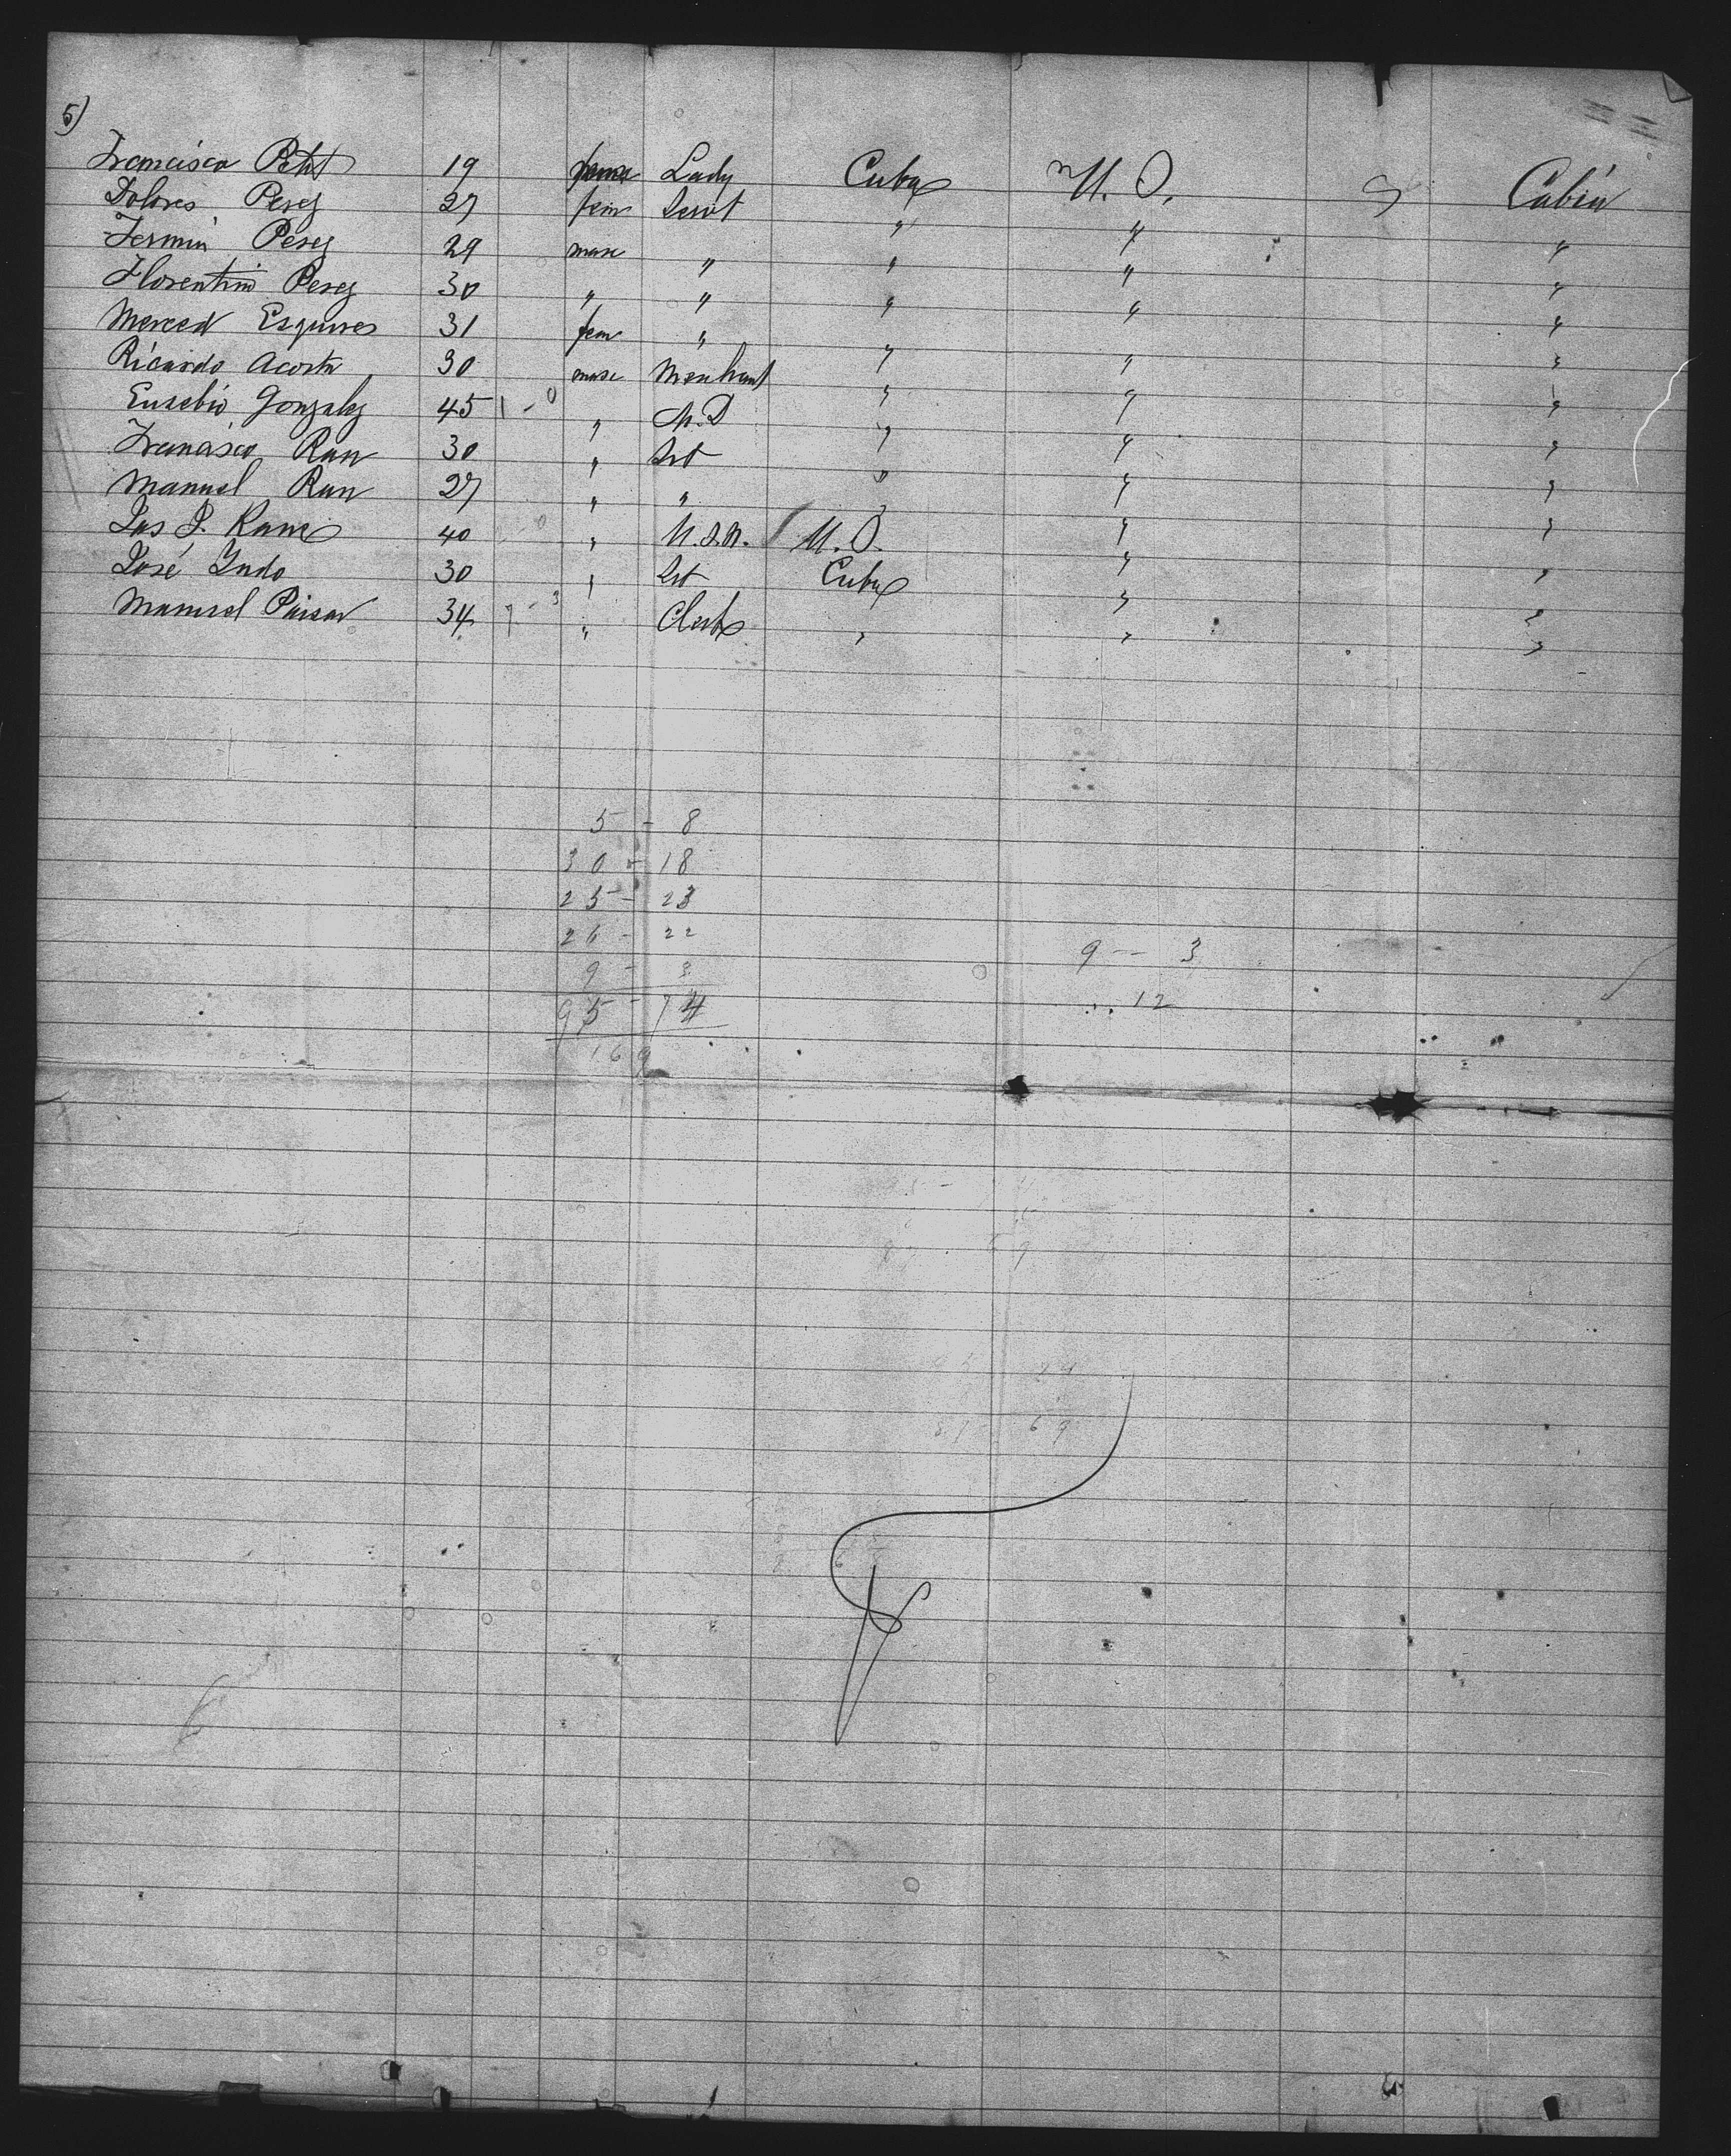 5)
Francisca Petit 19 fem Lady Cuba U.S. Cabin
Dolores Perez 27 fem Servt " " "
Fermin Perez 29 masc " " " "
Florentino Perez 30 " " " " "
Merced Esquives 31 fem " " " "
Ricardo Acosta 30 masc Merchant " " "
Eusebio Gonzalez 45 1 - 0 " M.D " " "
Francisco Run 30 " Svt " " "
Manuel Run 27 " " " " "
Jas J. 40 " U.S.N. U.S. " "
José Yndo 30 " Svt Cuba " "
Manuel 34 7 - 3 " Clerk " " "
5 - 8
30 - 18
25 - 23
26 - 22
9 - 3
9 -- 3
95 - 74
12
169